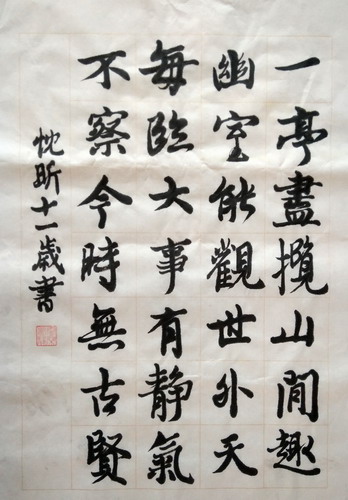 一亭盡攬山間趣
幽室能觀世外天
每臨大事有靜氣
不察今時無古賢
忱昕十一歲書